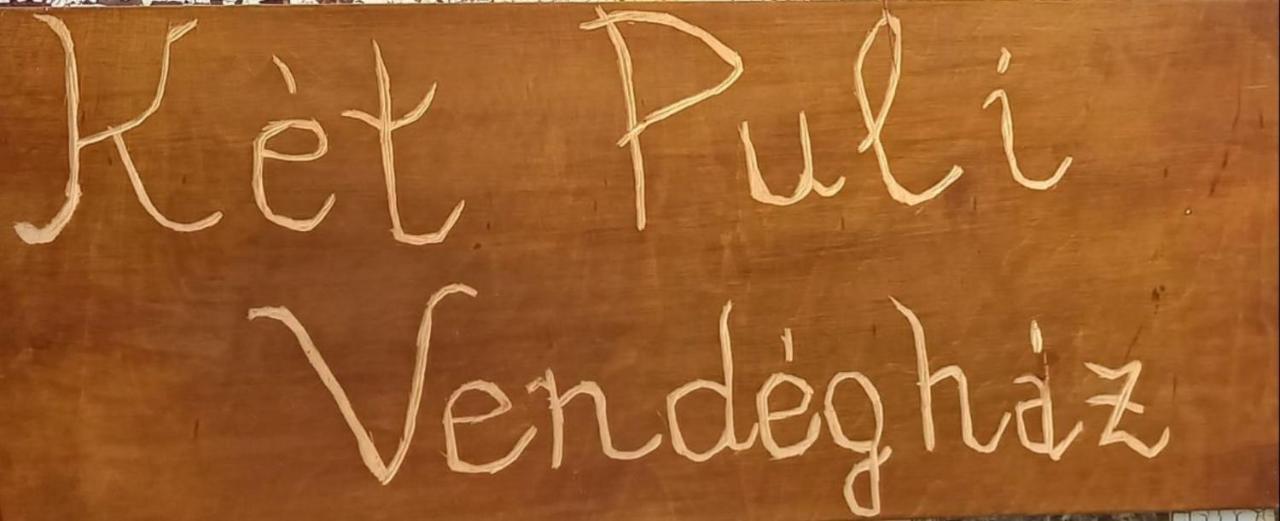 Két Puli
Vendégház